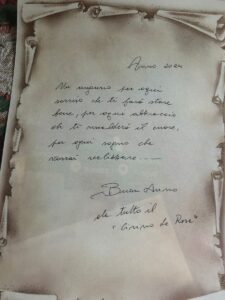 Anno 2024
Un augurio per ogni
sorriso che ti farà stare
bene, per ogni abbraccio
che ti scalderà il cuore,
per ogni sogno che
vorrai realizzare......
Buon Anno
da tutto il
" de Rosi"